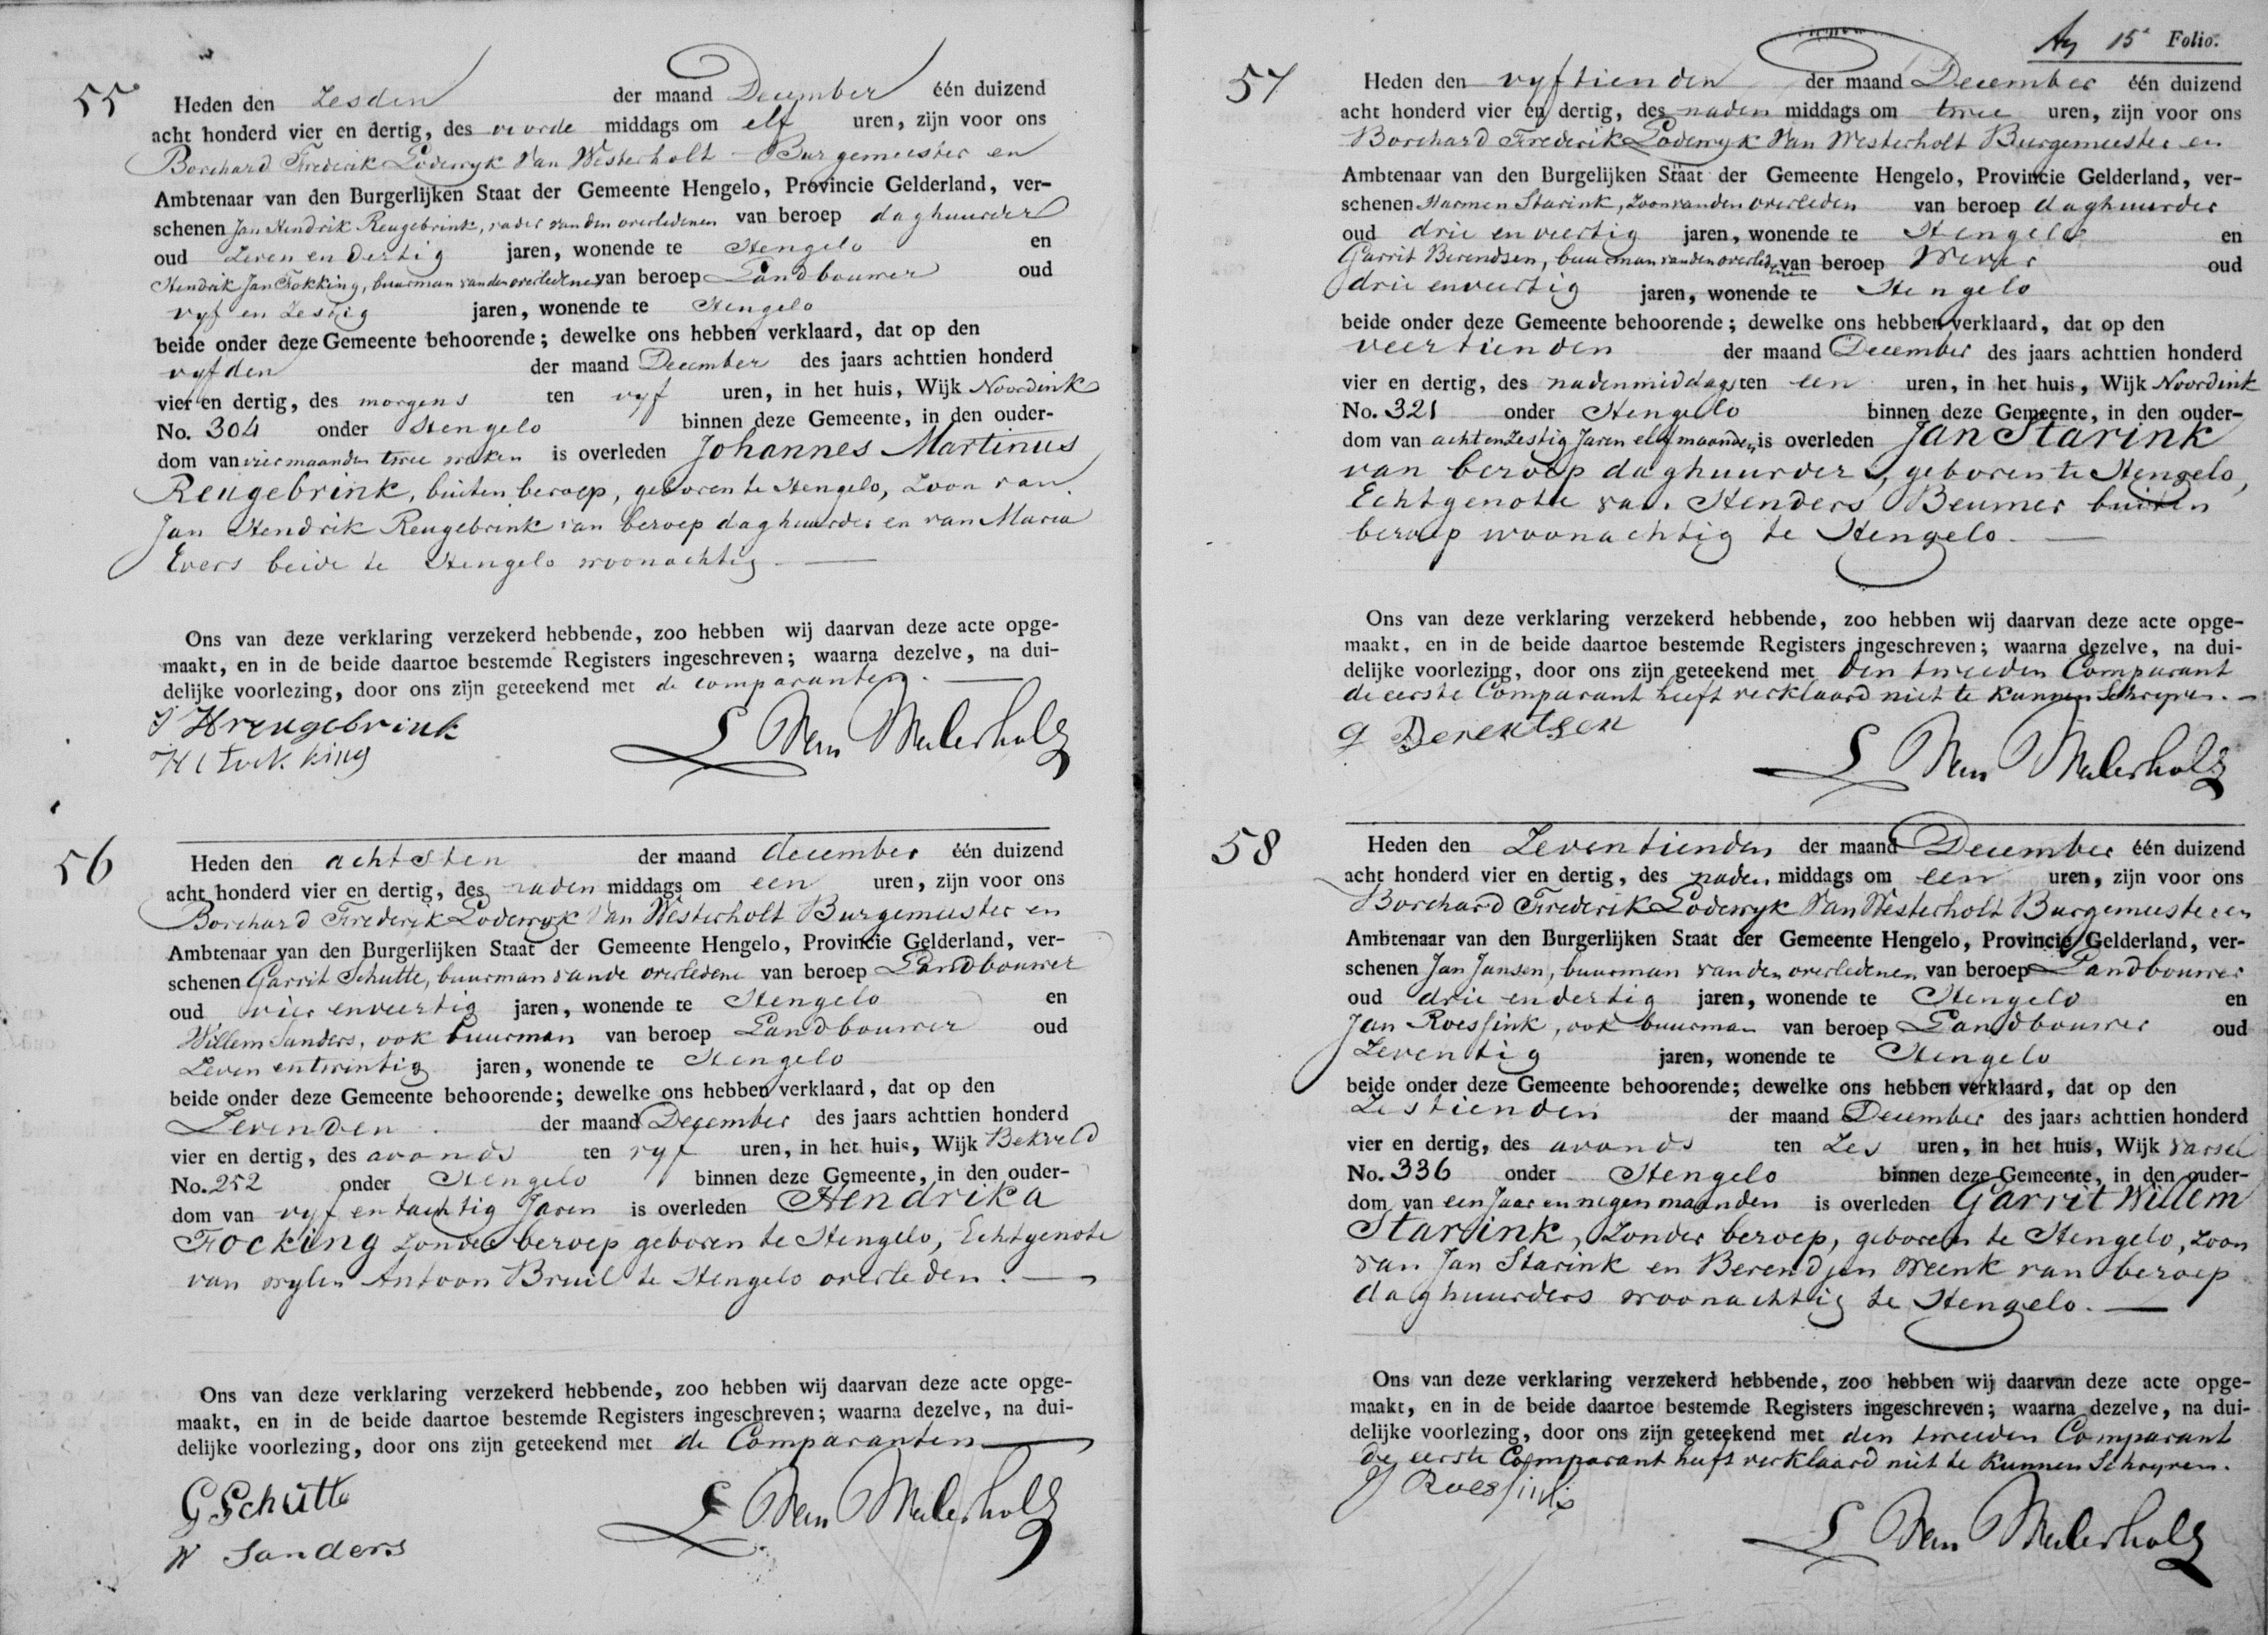 55
Heden den Zesden der maand December één duizend
acht honderd vier en dertig, des voorde middags om elf uren, zijn voor ons
Borchard Frederik Lodewyk Van Westerholt Burgemeester en
Ambtenaar van den Burgerlijken Staat der Gemeente Hengelo, Provincie Gelderland, ver-
schenen Jan Hendrik Reugebrink, vader van den overledenen van beroep daghuurder
oud Zeven en dertig jaren, wonende te Hengelo en
Hendrik Jan Fokking, buurman van den overledenen van beroep Landbouwer oud
vyf en Zestig jaren, wonende te Hengelo
beide onder deze Gemeente behoorende; dewelke ons hebben verklaard, dat op den
vyfden der maand December des jaars achttien honderd
vier en dertig, des morgens ten vyf uren, in het huis, Wijk Noordink
No. 304 onder Hengelo binnen deze Gemeente, in den ouder-
dom van vier maanden twee weken is overleden Johannes Martinus
Reugebrink, buiten beroep, geboren te Hengelo, Zoon van
Jan Hendrik Reugebrink van beroep daghuurder en van Maria
Evers beide te Hengelo woonachtig.
Ons van deze verklaring verzekerd hebbende, zoo hebben wij daarvan deze acte opge-
maakt, en in de beide daartoe bestemde Registers ingeschreven; waarna dezelve, na dui-
delijke voorlezing, door ons zijn geteekend met de comparanten.
J Hreugebrink
L Van Westerholt
56
Heden den achtsten der maand december één duizend
acht honderd vier en dertig, des naden middags om een uren, zijn voor ons
Borchard Frederik Lodewyk Van Westerholt Burgemeester en
Ambtenaar van den Burgerlijken Staat der Gemeente Hengelo, Provincie Gelderland, ver-
schenen Garrit Schutte, buurman vande overledene van beroep Landbouwer
oud vier enveertig jaren, wonende te Hengelo en
Willem Sanders, ook buurman van beroep Landbouwer oud
Zeven entwintig jaren, wonende te Hengelo
beide onder deze Gemeente behoorende; dewelke ons hebben verklaard, dat op den
Zevenden der maand December des jaars achttien honderd
vier en dertig, des avonds ten vyf uren, in het huis, Wijk Bekveld
No. 252 onder Hengelo binnen deze Gemeente, in den ouder-
dom van vyf entachtig Jaren is overleden Hendrika
Focking Zonder beroep geboren te Hengelo, Echtgenote
van wylen Antoon Bruil te Hengelo overleden.
Ons van deze verklaring verzekerd hebbende, zoo hebben wij daarvan deze acte opge-
maakt, en in de beide daartoe bestemde Registers ingeschreven; waarna dezelve, na dui-
delijke voorlezing, door ons zijn geteekend met de Comparanten
G Schutte
L Van Westerholt
W Sanders
15e Folio.
57
Heden den vyftienden der maand December één duizend
acht honderd vier en dertig, des naden middags om twee uren, zijn voor ons
Borchard Frederik Lodewyk Van Westerholt Burgemeester en
Ambtenaar van den Burgelijken Staat der Gemeente Hengelo, Provincie Gelderland, ver-
schenen Harmen Starink, Zoon vanden overleden van beroep daghuurder
oud drie enveertig jaren, wonende te Hengelo en
Garrit Berendsen, buurman vanden overledene van beroep Wever oud
drie enveertig jaren, wonende te Hengelo
beide onder deze Gemeente behoorende; dewelke ons hebben verklaard, dat op den
veertienden der maand December des jaars achttien honderd
vier en dertig, des nadenmiddags ten een uren, in het huis, Wijk Noordink
No. 321 onder Hengelo binnen deze Gemeente, in den ouder-
dom van acht enZestig Jaren elf maanden is overleden Jan Starink
van beroep daghuurder, geboren te Hengelo,
Echtgenote van Henders Beumer buiten
beroep woonachtig te Hengelo.
Ons van deze verklaring verzekerd hebbende, zoo hebben wij daarvan deze acte opge-
maakt, en in de beide daartoe bestemde Registers ingeschreven; waarna dezelve, na dui-
delijke voorlezing, door ons zijn geteekend met den tweeden Comparant
de eerste Comparant heeft verklaard niet te kunnen Schryven.
G Berentsen
L Van Westerholt
58
Heden den Zeventienden der maand December één duizend
acht honderd vier en dertig, des naden middags om een uren, zijn voor ons
Borchard Frederik Lodewyk Van Westerholt Burgemeester en
Ambtenaar van den Burgerlijken Staat der Gemeente Hengelo, Provincie Gelderland, ver-
schenen Jan Jansen, buurman vanden overledenen van beroep Landbouwer
oud drie endertig jaren, wonende te Hengelo en
Jan Roessink, ook buurman van beroep Landbouwer oud
Zeventig jaren, wonende te Hengelo
beide onder deze Gemeente behoorende; dewelke ons hebben verklaard, dat op den
Zestienden der maand December des jaars achttien honderd
vier en dertig, des avonds ten Zes uren, in het huis, Wijk Varsel
No. 336 onder Hengelo binnen deze Gemeente, in den ouder-
dom van een Jaar en negen maanden is overleden Garrit Willem
Starink, Zonder beroep, geboren te Hengelo, Zoon
van Jan Starink en Berendjen Weenk van beroep
daghuurders woonachtig te Hengelo.
Ons van deze verklaring verzekerd hebbende, zoo hebben wij daarvan deze acte opge-
maakt, en in de beide daartoe bestemde Registers ingeschreven; waarna dezelve, na dui-
delijke voorlezing, door ons zijn geteekend met den tweeden Comparant
de eerste Comparant heeft verklaard niet te kunnen Schryven.
J Roessink
L Van Westerholt